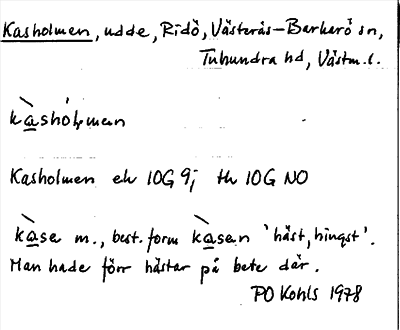 Kasholmen, udde, Ridö, Västerås-Barkarö sn,
Tuhundra hd, Västm. l.
kàshólman
Kasholmen ek 10G 9j th 10G NO
kàse m., best. form kàsen 'häst, hingst'.
Man hade förr hästar på bete där.
PO Kohls 1978